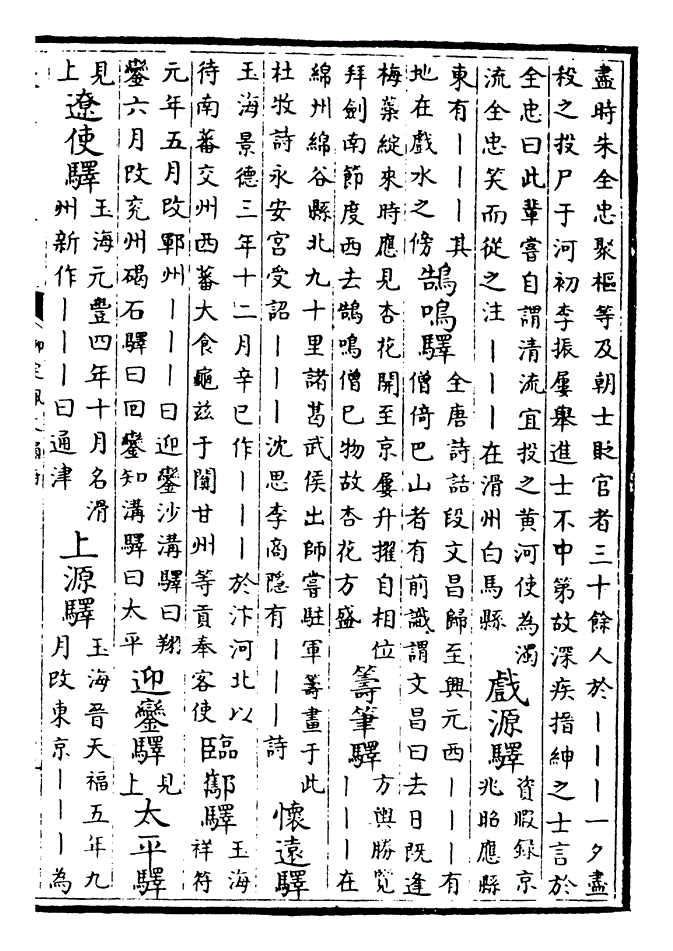 盡時朱全忠聚樞等及朝士貶官者三十餘人於丨丨丨一夕盡
殺之投尸于河初李振屢舉進士不中第故深疾搢紳之士言於
全忠曰此輩嘗自謂清流宜投之黄河使為濁
流全忠笑而從之注丨丨丨在滑州白馬縣
戲源驛
資暇録京
兆昭應縣
東有丨丨丨其
地在戲水之傍
鵠鳴驛
全唐詩話段文昌歸至興元西丨丨丨有
僧倚巴山者有前識謂文昌曰去日既逢
梅蘂綻來時應見杏花開至京屢升擢自相位
拜劍南節度西去鵠鳴僧已物故杏花方盛
籌筆驛
方輿勝覽
丨丨丨在
綿州綿谷縣北九十里諸葛武侯出師嘗駐軍籌畫于此
杜牧詩永安宫受詔丨丨丨沈思李商隱有丨丨丨詩
懷遠驛
玉海景德三年十二月辛巳作丨丨丨於汴河北以
待南蕃交州西蕃大食龜兹于闐甘州等貢奉客使
臨酅驛
玉海
祥符
元年五月改鄆州丨丨丨曰迎鑾沙溝驛曰翔
鑾六月改兖州碣石驛曰回鑾知溝驛曰太平
迎鑾驛
見
上
太平驛
見
上
遼使驛
玉海元豐四年十月名滑
州新作丨丨丨曰通津
上源驛
玉海晉天福五年九
月改東京丨丨丨為